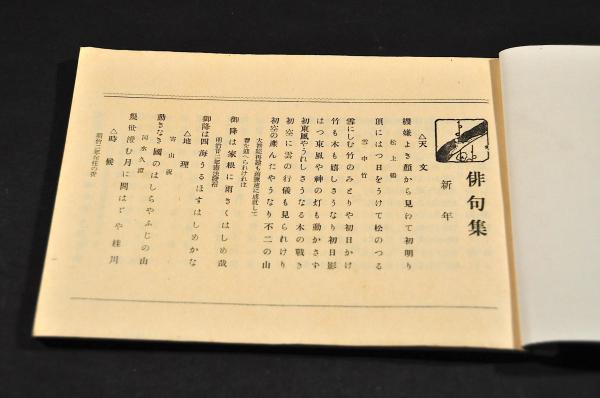 俳句集
新年
△天文
機嫌よき顔から見わて初明り
松上鶴
頂にはつ日をうけて松のつる
雪中竹
雪にしむ竹のみとりや初日かけ
竹も木も嬉しさうなり初日影
はつ東風や神の灯も動かさす
初東風やうれしさうなる木の戦き
初空に雲の行儀も見られけり
初空の産んたやうなり不二の山
御降は家根に雨さくはしめ哉
御降は四海うるほすはしめかな
△地理
寄山祝
動きなき國のはしらやふじの山
河水久澄
幾世澄む月に問はゞや桂川
△時候